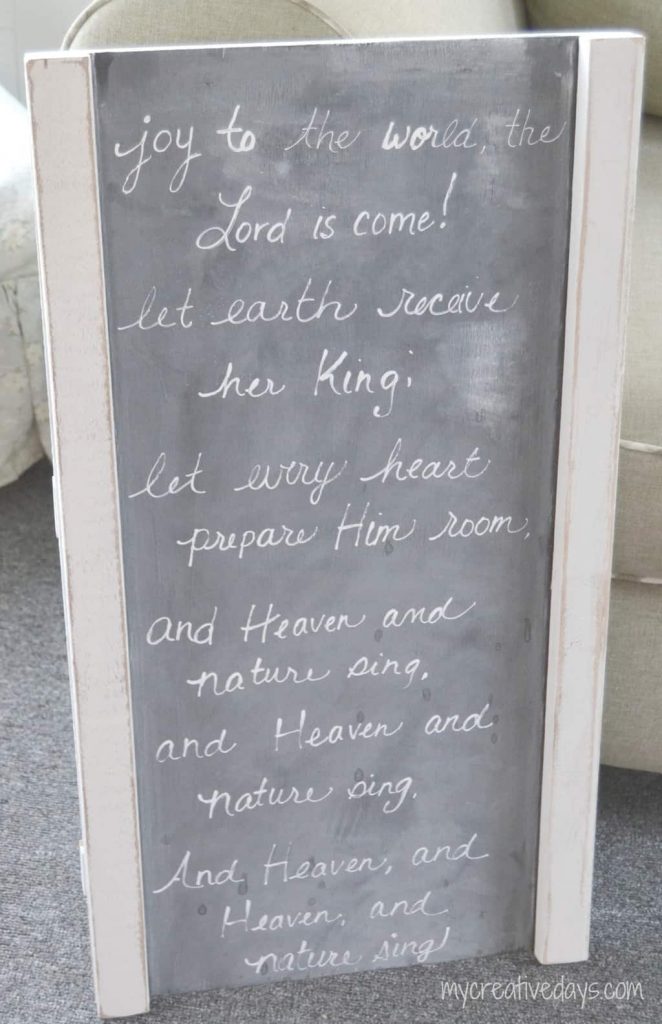 joy to the world, the
Lord is come!
let earth receive
her King;
let every heart
prepare Him room,
and Heaven and
nature sing,
and Heaven and
nature sing,
And Heaven, and
Heaven, and
nature sing!
mycreativedays.com